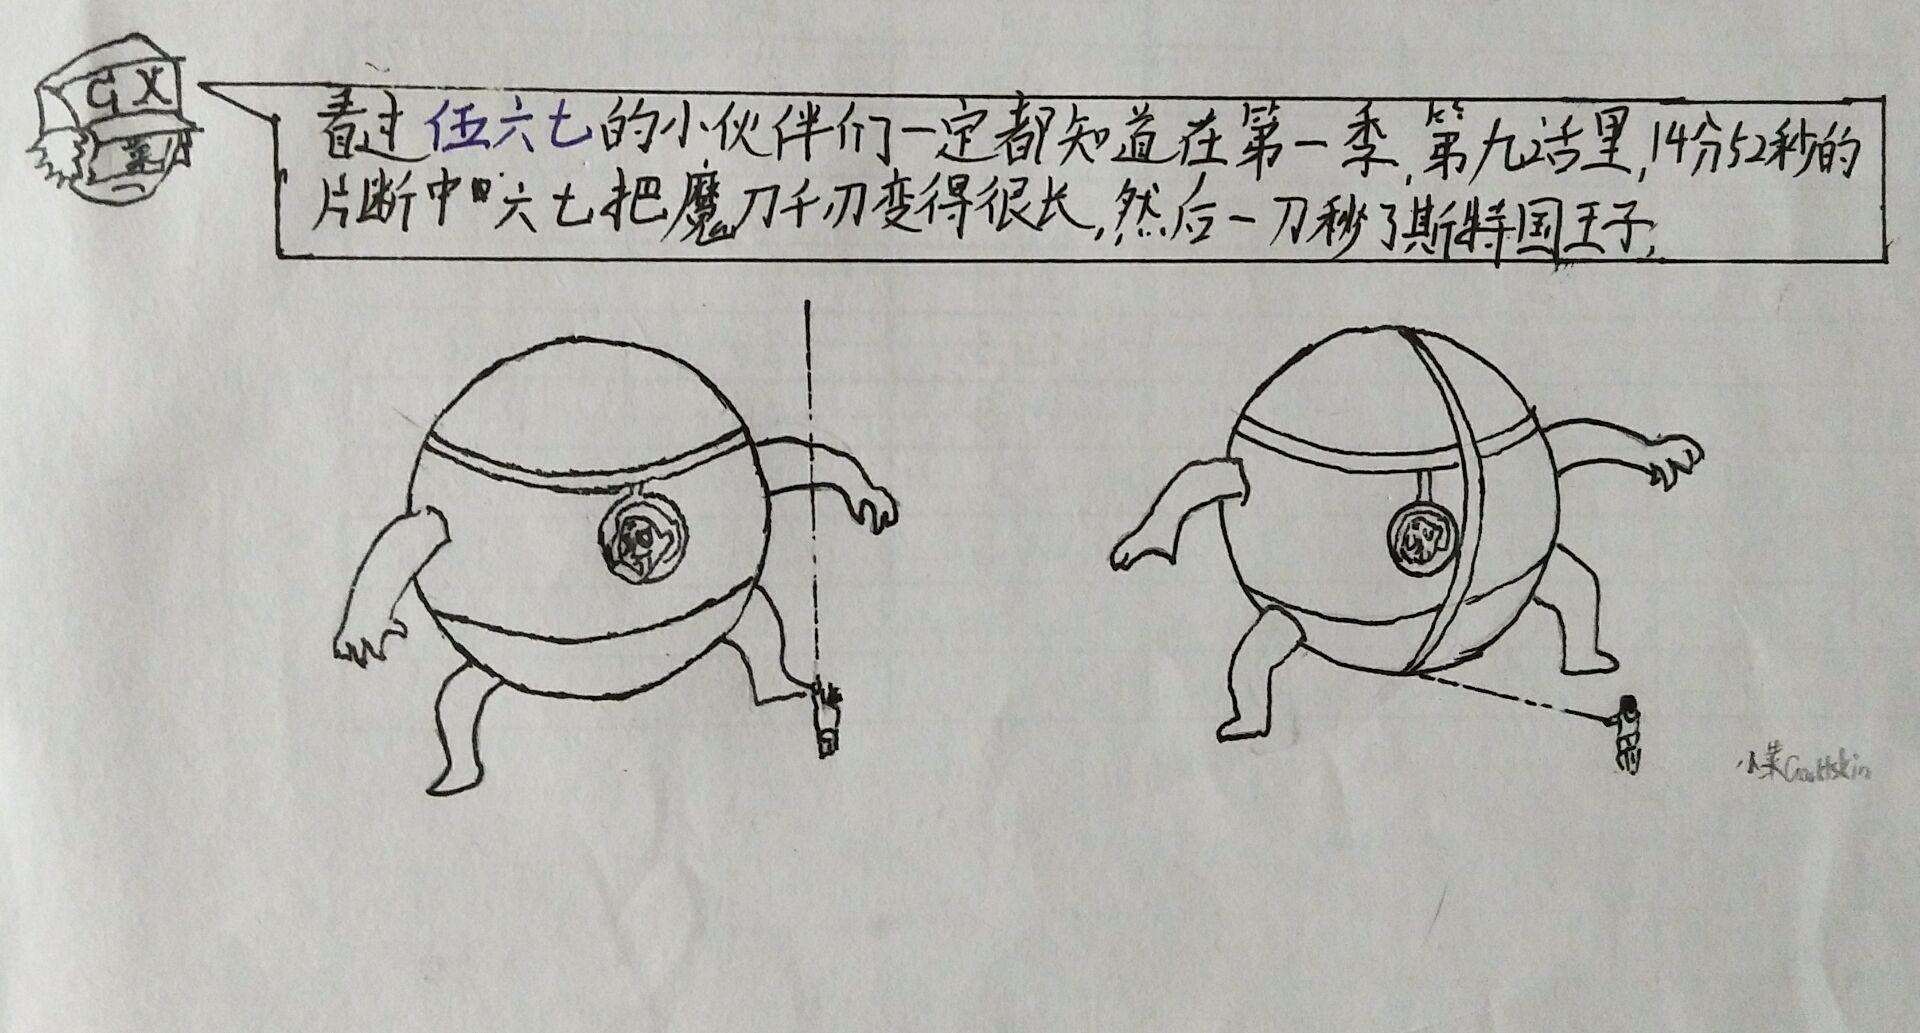 GX
看过伍六七的小伙伴们一定都知道在第一季,第九话里,14分52秒的
片断中"六七把魔刀千刃变得很长,然后一刀秒了斯特国王子,
小朱